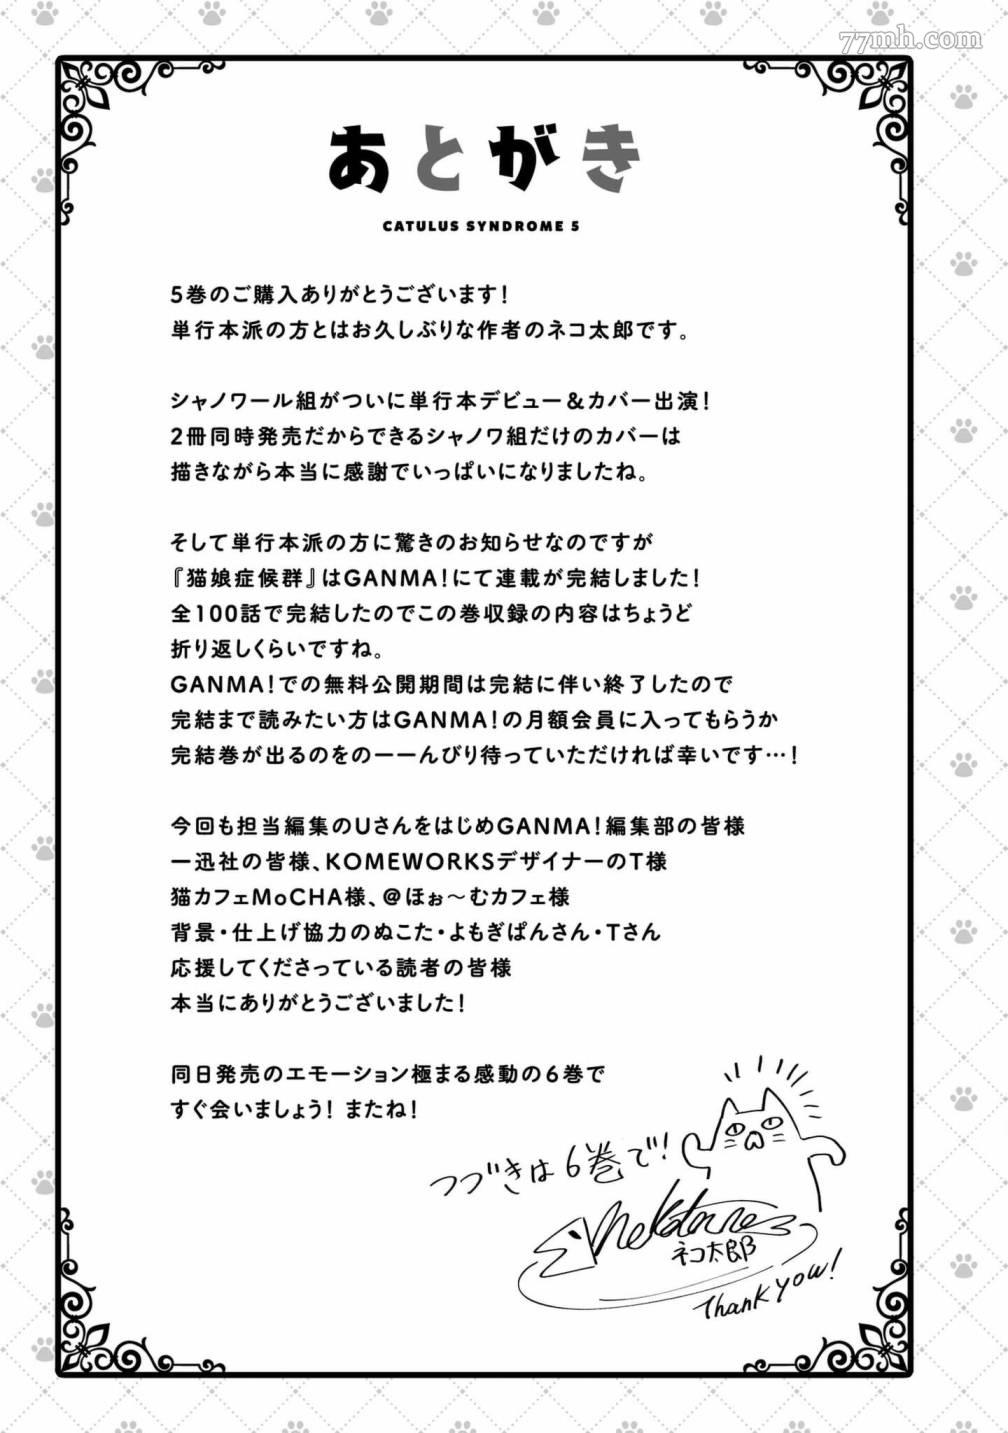 77mh.com
あとがき
CATULUS SYNDROME 5
5巻のご購入ありがとうございます！
単行本派の方とはお久しぶりな作者のネコ太郎です。
シャノワール組がついに単行本デビュー＆カバー出演！
2冊同時発売だからできるシャノワ組だけのカバーは
描きながら本当に感謝でいっぱいになりましたね。
そして単行本派の方に驚きのお知らせなのですが
『猫娘症候群』はGANMA！にて連載が完結しました！
全100話で完結したのでこの巻収録の内容はちょうど
折り返しくらいですね。
GANMA！での無料公開期間は完結に伴い終了したので
完結まで読みたい方はGANMA！の月額会員に入ってもらうか
完結巻が出るのをのーーんびり待っていただければ幸いです…！
今回も担当編集のUさんをはじめGANMA！編集部の皆様
一迅社の皆様、KOMEWORKSデザイナーのT様
猫カフェMoCHA様、＠ほぉ〜むカフェ様
背景・仕上げ協力のぬこた・よもぎぱんさん・Tさん
応援してくださっている読者の皆様
本当にありがとうございました！
同日発売のエモーション極まる感動の6巻で
すぐ会いましょう！またね！
つづきは6巻で！
ネコ太郎
Thank you!